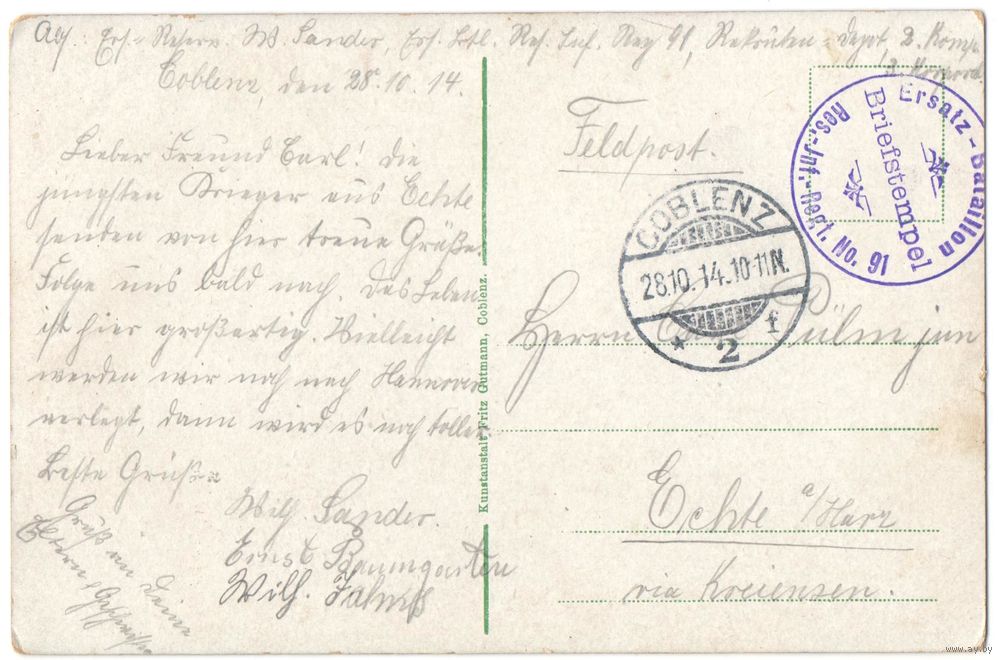 Abs: Ers.-Reserv. W Sander, Ers. Btl. Res. Inf. Reg 91, Rekruten-Depot, 2. Komp.
Coblenz, den 28.10.14.
Lieber Freund Carl! Die
jüngsten Krieger aus Echte
senden von hier treue Grüße.
Folge uns bald nach. Das Leben
ist hier großartig. Vielleicht
werden wir noch nach Hannover
verlegt, dann wird es noch toller.
Beste Grüße
Wilh. Sander.
Ernst Baumgarten
Wilh.
Gruß an Deine
Eltern & Geschwister
Kunstanstalt Fritz Gutmann, Coblenz.
Feldpost.
Ersatz-Bataillon
Briefstempel
Res.-Inf.-Regt. No. 91
COBLENZ
28.10.14.10-11N.
* 2 f
Herrn Carl jun
Echte a/Harz
via Kreiensen.
www.ay.by